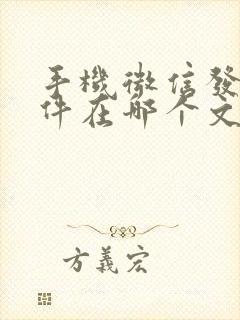 手機微信發
件在哪个文
方義宏